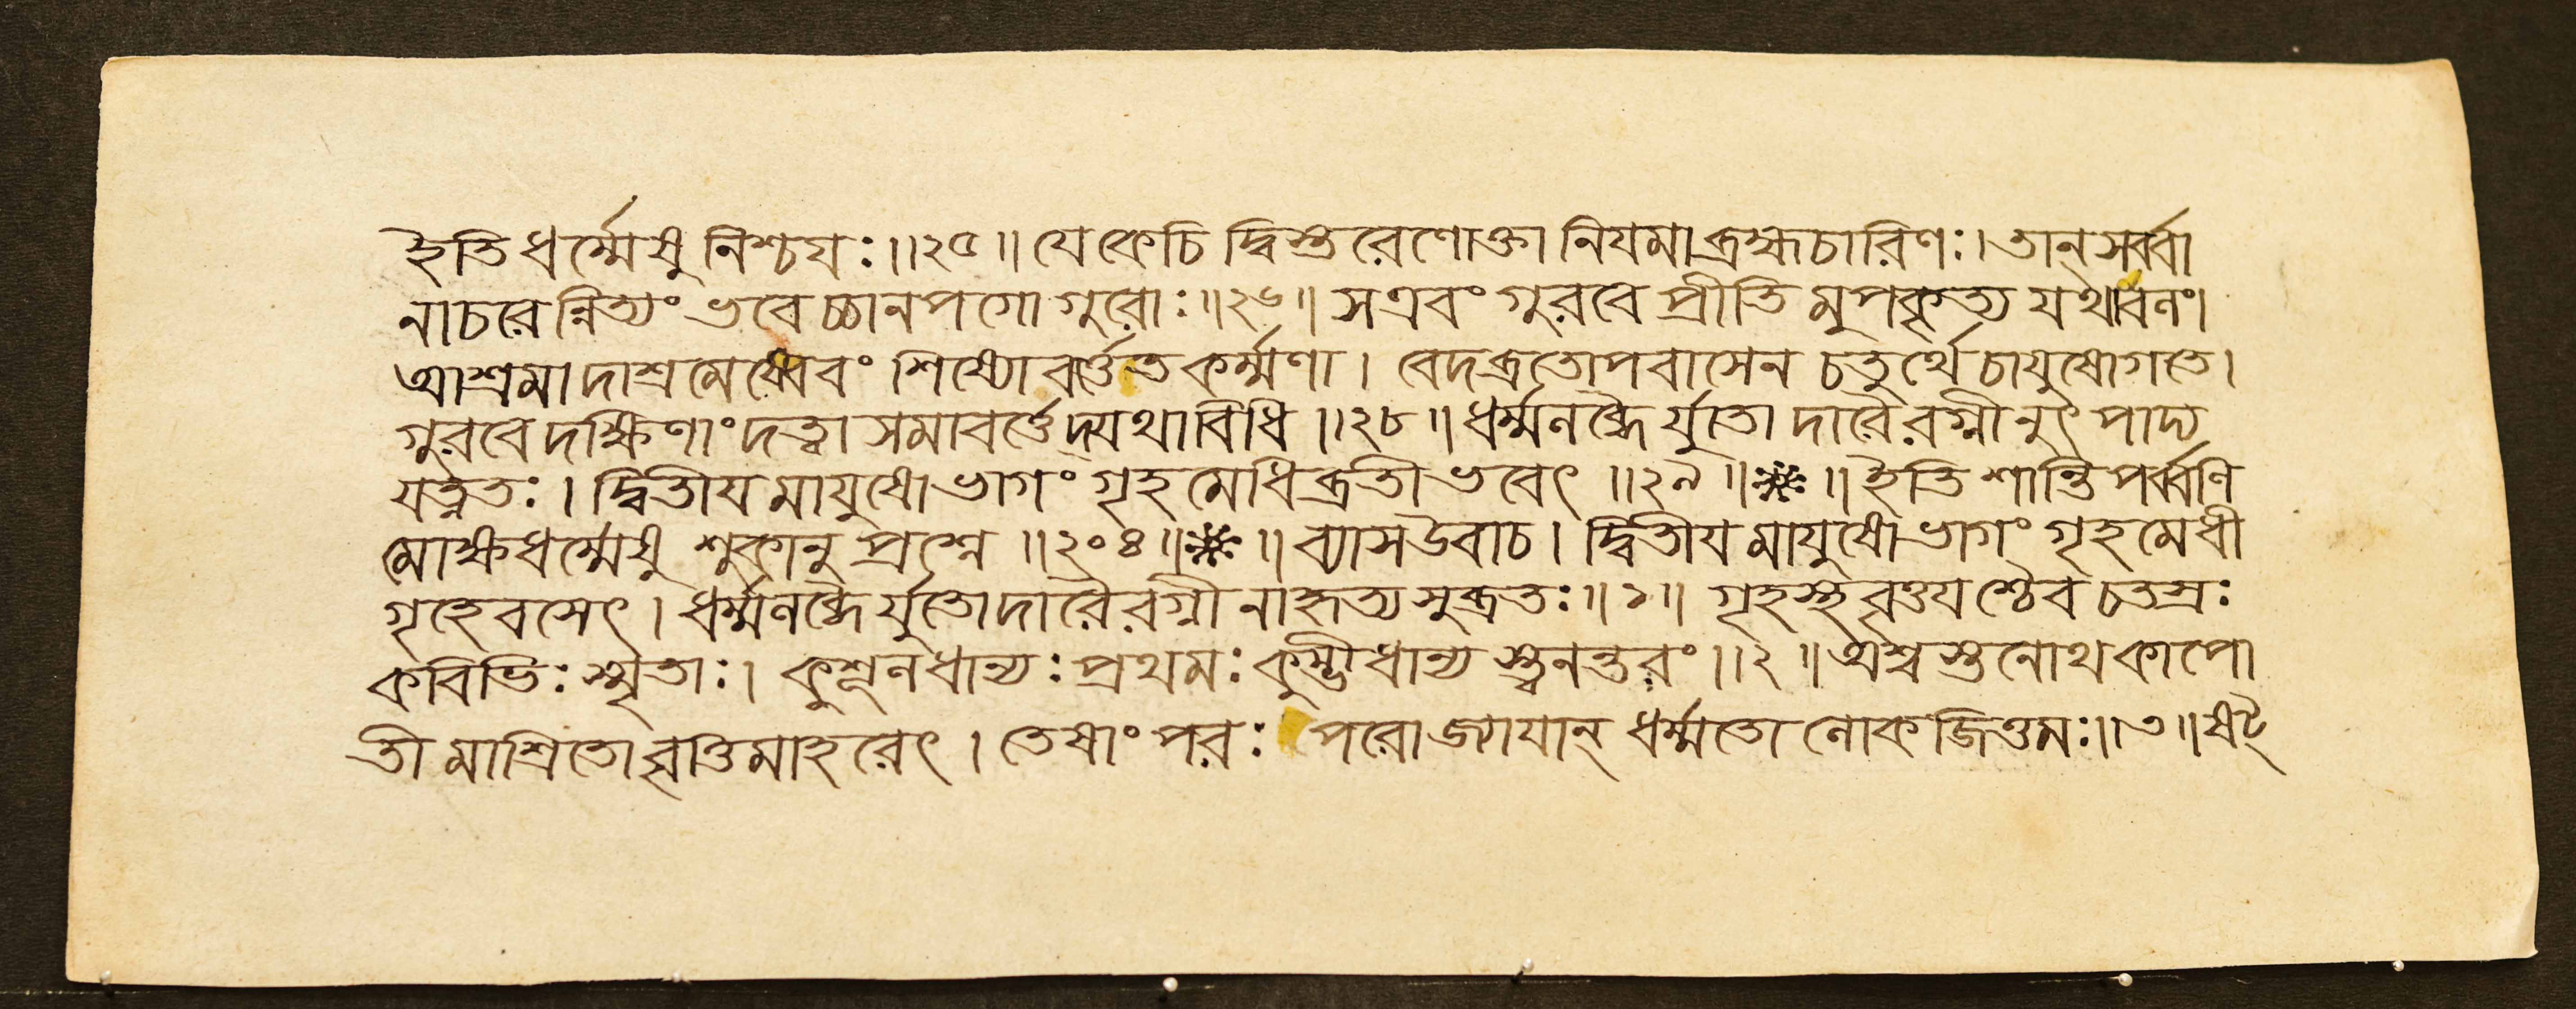 ইতি ধর্ম্মেষু নিশ্চয়ঃ ॥২৫॥ যে কেচি দ্বিস্তরেণোক্তা নিয়মা ব্রহ্মচারিণঃ। তান্ সর্ব্বা
নাচরেন্নিত্যং ভবেচ্চানপগো গুরোঃ ॥২৬॥ স এবং গুরবে প্রীতি মুপকৃত্য যথাবলং।
আশ্রমাদাশ্রমেষ্বেবং শিষ্যো বর্ত্তেত কর্ম্মণা। বেদব্রতোপবাসেন চতুর্থে চায়ুষো গতে।
গুরবে দক্ষিণাং দত্বা সমাবর্ত্তেদ্যথাবিধি ॥২৮॥ ধর্ম্মলব্ধৈ র্যুতো দারৈরগ্নীনুৎপাদ্য
যত্নতঃ। দ্বিতীয় মায়ুষো ভাগং গৃহমেধিব্রতী ভবেৎ ॥২৯॥※॥ ইতি শান্তিপর্ব্বণি
মোক্ষধর্ম্মেষু শুকানুপ্রশ্নে ॥২০৪॥※॥ ব্যাস উবাচ। দ্বিতীয় মায়ুষো ভাগং গৃহমেধী
গৃহে বসেৎ। ধর্ম্মলব্ধৈ র্যুতো দারৈরগ্নী নাহৃত্য সুব্রতঃ॥১॥ গৃহস্থবৃত্তয়শ্চৈব চতস্রঃ
কবিভিঃ স্মৃতাঃ। কুশূলধান্যঃ প্রথমঃ কুম্ভীধান্য স্ত্বনন্তরং ॥২॥ অশ্বস্তনোথ কাপো
তী মাশ্রিতো বৃত্তিমাহরেৎ। তেষাং পরঃ পরো জ্যায়ান্ ধর্ম্মতো লোকজিত্তমঃ॥৩॥ ষট্